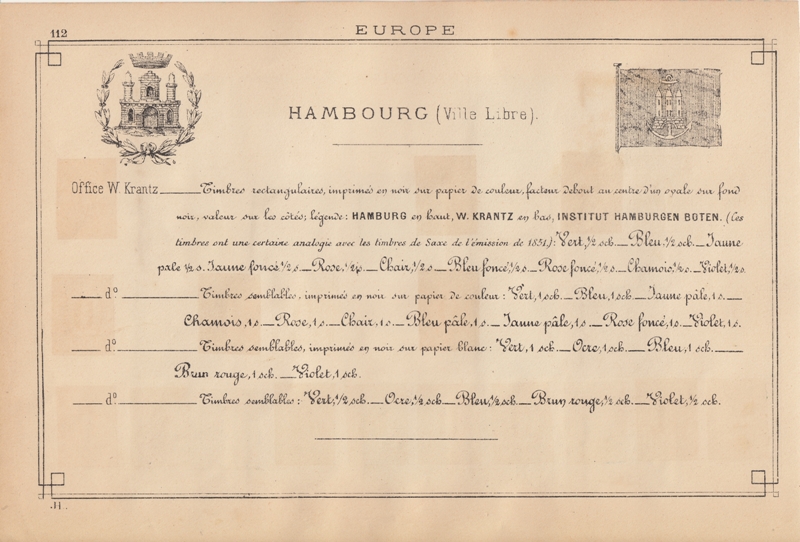 112
EUROPE
HAMBOURG (Ville Libre).
Office W. Krantz ___ Timbres rectangulaires, imprimés en noir sur papier de couleur, facteur debout au centre d'un ovale sur fond
noir, valeur sur les côtés; légende: HAMBURG en haut, W. KRANTZ en bas, INSTITUT HAMBURGEN BOTEN. (Ces
timbres ont une certaine analogie avec les timbres de Saxe de l'émission de 1851.): Vert, ½ sch. _ Bleu, ½ sch. _ Jaune
pale ½ s. Jaune foncé, ½ s. _ Rose, ½ s. _ Chair, ½ s. _ Bleu foncé, ½ s. _ Rose foncé, ½ s. _ Chamois, ½ s. _ Violet, ½ s.
___ dº ___ Timbres semblables, imprimés en noir sur papier de couleur: Vert, 1 sch. _ Bleu, 1 sch. _ Jaune pâle, 1 s. _
Chamois, 1 s. _ Rose, 1 s. _ Chair, 1 s. _ Bleu pâle, 1 s. _ Jaune pâle, 1 s. _ Rose foncé, 1 s. _ Violet, 1 s.
___ dº ___ Timbres semblables, imprimés en noir sur papier blanc: Vert, 1 sch. _ Ocre, 1 sch. _ Bleu, 1 sch. _
Brun rouge, 1 sch. _ Violet, 1 sch.
___ dº ___ Timbres semblables: Vert, 1/2 sch. _ Ocre, ½ sch. _ Bleu, ½ sch. _ Brun rouge, ½ sch. _ Violet, ½ sch.